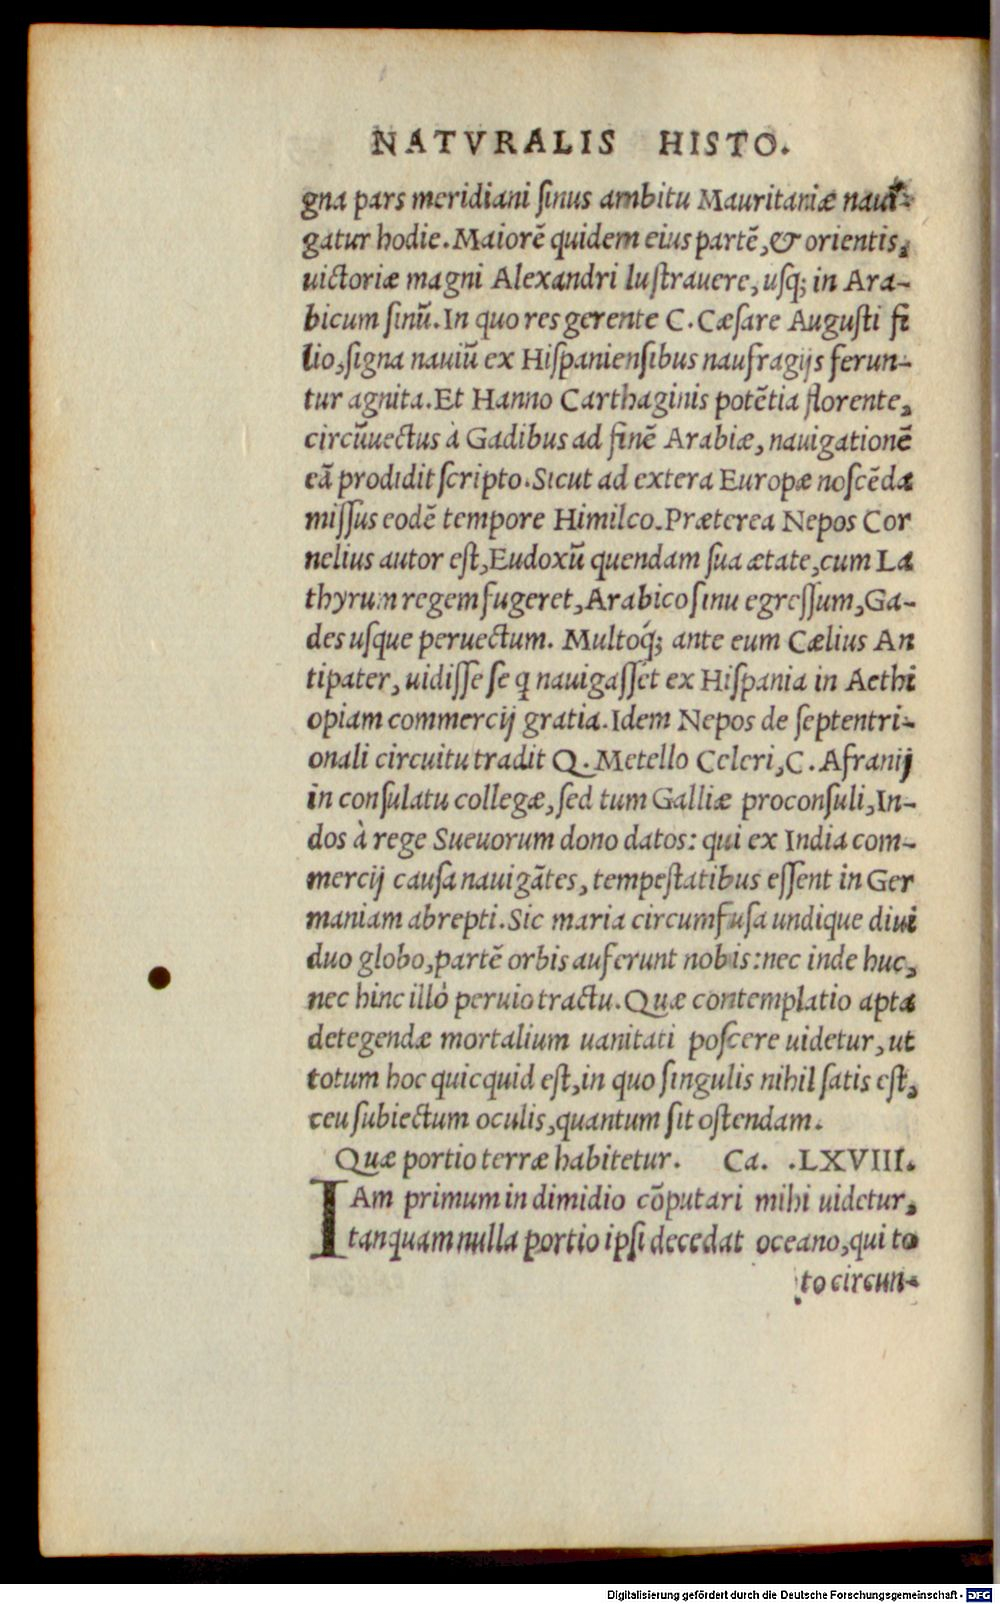 NATVRALIS HISTO.
gna pars meridiani ſinus ambitu Mauritaniæ naui-
gatur hodie. Maiorē quidem eius partē, & orientis,
uictoriæ magni Alexandri luſtrauere, uſq; in Ara-
bicum ſinū. In quo res gerente C. Cæſare Auguſti fi
lio, ſigna nauiū ex Hiſpanienſibus naufragijs ferun-
tur agnita. Et Hanno Carthaginis potētia florente,
circūuectus à Gadibus ad finē Arabiæ, nauigationē
eā prodidit ſcripto. Sicut ad extera Europæ noſcēda
miſſus eodē tempore Himilco. Præterea Nepos Cor
nelius autor eſt, Eudoxū quendam ſua ætate, cum La
thyrum regem fugeret, Arabico ſinu egreſſum, Ga-
des uſque peruectum. Multoq́; ante eum Cælius An
tipater, uidiſſe ſe q nauigaſſet ex Hiſpania in Aethi
opiam commercij gratia. Idem Nepos de ſeptentri-
onali circuitu tradit Q. Metello Celeri, C. Afranij
in conſulatu collegæ, ſed tum Galliæ proconſuli, In-
dos à rege Sueuorum dono datos: qui ex India com-
mercij cauſa nauigātes, tempeſtatibus eſſent in Ger
maniam abrepti. Sic maria circumfuſa undique diui
duo globo, partē orbis auferunt nobis: nec inde huc,
nec hinc illò peruio tractu. Quæ contemplatio apta
detegendæ mortalium uanitati poſcere uidetur, ut
totum hoc quicquid eſt, in quo ſingulis nihil ſatis eſt,
ceu ſubiectum oculis, quantum ſit oſtendam.
Quæ portio terræ habitetur. Ca. .LXVIII.
IAm primum in dimidio cōputari mihi uidetur,
tanquam nulla portio ipſi decedat oceano, qui to
to circun-
Digitalisierung gefördert durch die Deutsche Forschungsgemeinschaft - DFG